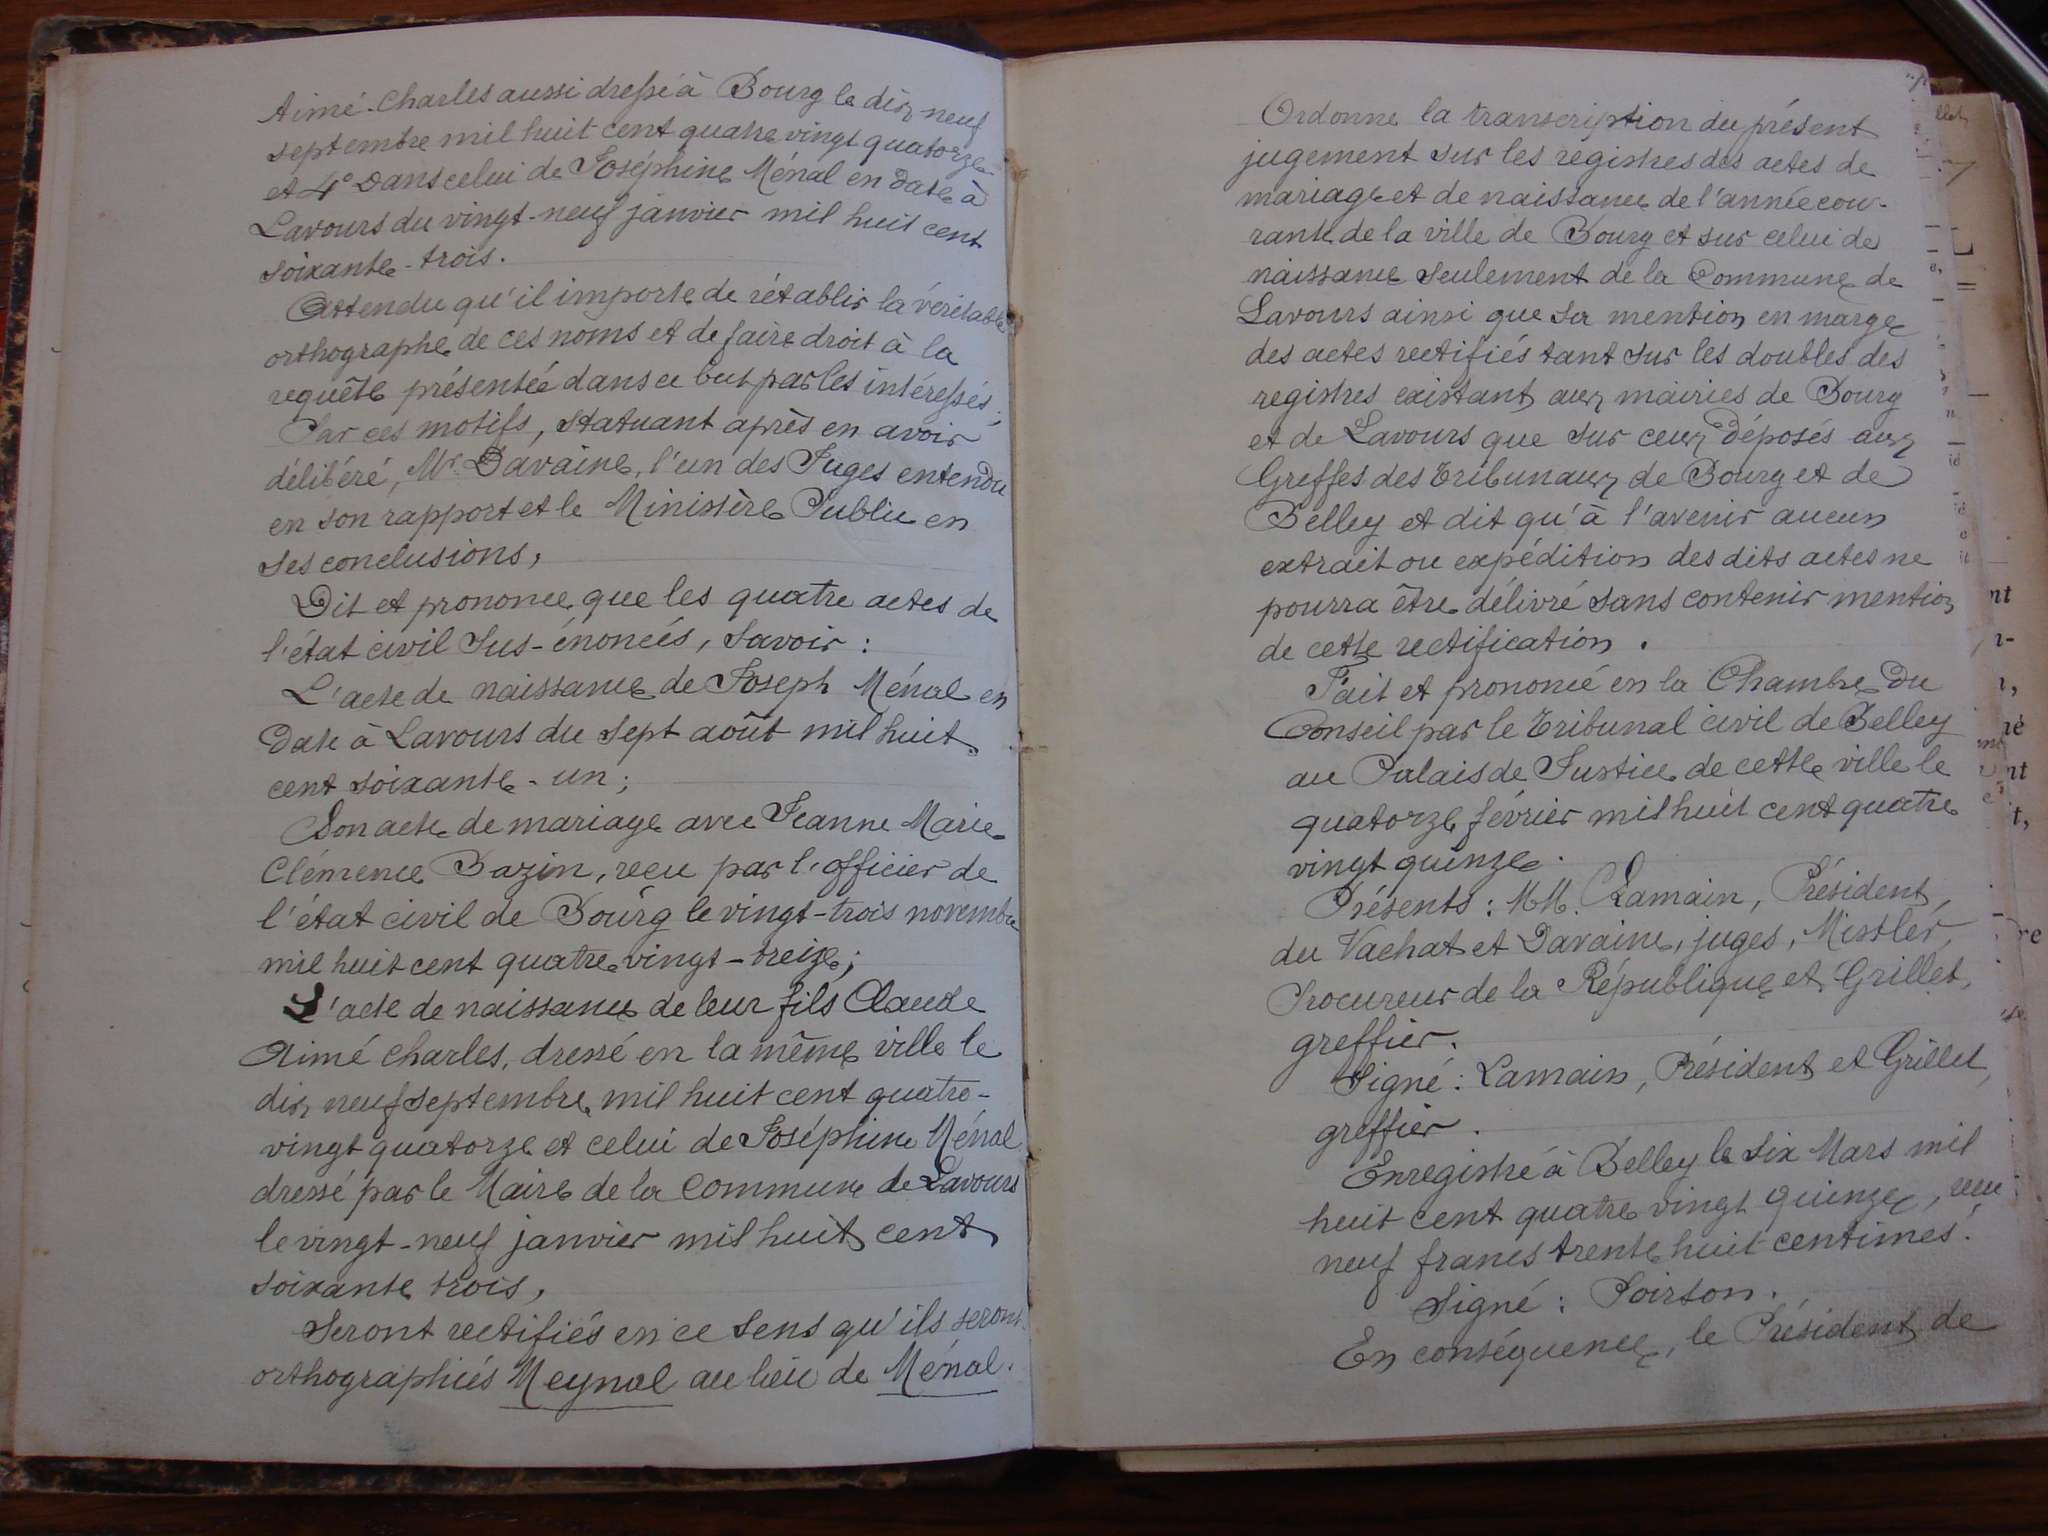 Aimé-Charles aussi dressé à Bourg le dix neuf
septembre mil huit cent quatre vingt quatorze
et 4° Dans celui de Joséphine Ménal en date à
Lavours du vingt-neuf janvier mil huit cent
soixante-trois.
Attendu qu'il importe de rétablir la véritable
orthographe de ces noms et de faire droit à la
requête présentée dans ce but par les intéressés;
Par ces motifs, statuant après en avoir
délibéré, Mr Davaine, l'un des Juges entendu
en son rapport et le Ministère Public en
ses conclusions,
Dit et prononce que les quatre actes de
l'état civil sus-énoncés, savoir :
L'acte de naissance de Joseph Ménal en
date à Lavours du sept août mil huit
cent soixante-un;
Son acte de mariage avec Jeanne Marie
Clémence Bazin, reçu par l'officier de
l'état civil de Bourg le vingt-trois novembre
mil huit cent quatre vingt-treize;
L'acte de naissance de leur fils Claude
Aimé Charles, dressé en la même ville le
dix neuf septembre mil huit cent quatre-
vingt quatorze et celui de Joséphine Ménal
dressé par le Maire de la Commune de Lavours
le vingt-neuf janvier mil huit cent
soixante trois,
Seront rectifiés en ce sens qu'ils seront
orthographiés Meynal au lieu de Ménal.
Ordonne la transcription du présent
jugement sur les régistres des actes de
mariage et de naissance de l'année cou-
rante de la ville de Bourg et sur celui de
naissance seulement de la Commune de
Lavours ainsi que sa mention en marge
des actes rectifiés tant sur les doubles des
registres existant aux mairies de Bourg
et de Lavours que sur ceux déposés aux
Greffes des Tribunaux de Bourg et de
Belley et dit qu'à l'avenir aucun
extrait ou expédition des dits actes ne
pourra être délivré sans contenir mention
de cette rectification.
Fait et prononcé en la Chambre du
Conseil par le Tribunal civil de Belley
au Palais de Justice de cette ville le
quatorze février mil huit cent quatre
vingt quinze.
Présents : MM. Lamain, Président,
du Vachat et Davaine, juges, Mistler,
Procureur de la République et Grillet,
greffier.
Signé : Lamain, Président et Grillet,
greffier.
Enregistré à Belley le six Mars mil
huit cent quatre vingt quinze, reçu
neuf francs trente huit centimes.
Signé : Poirson.
En conséquence, le Président de